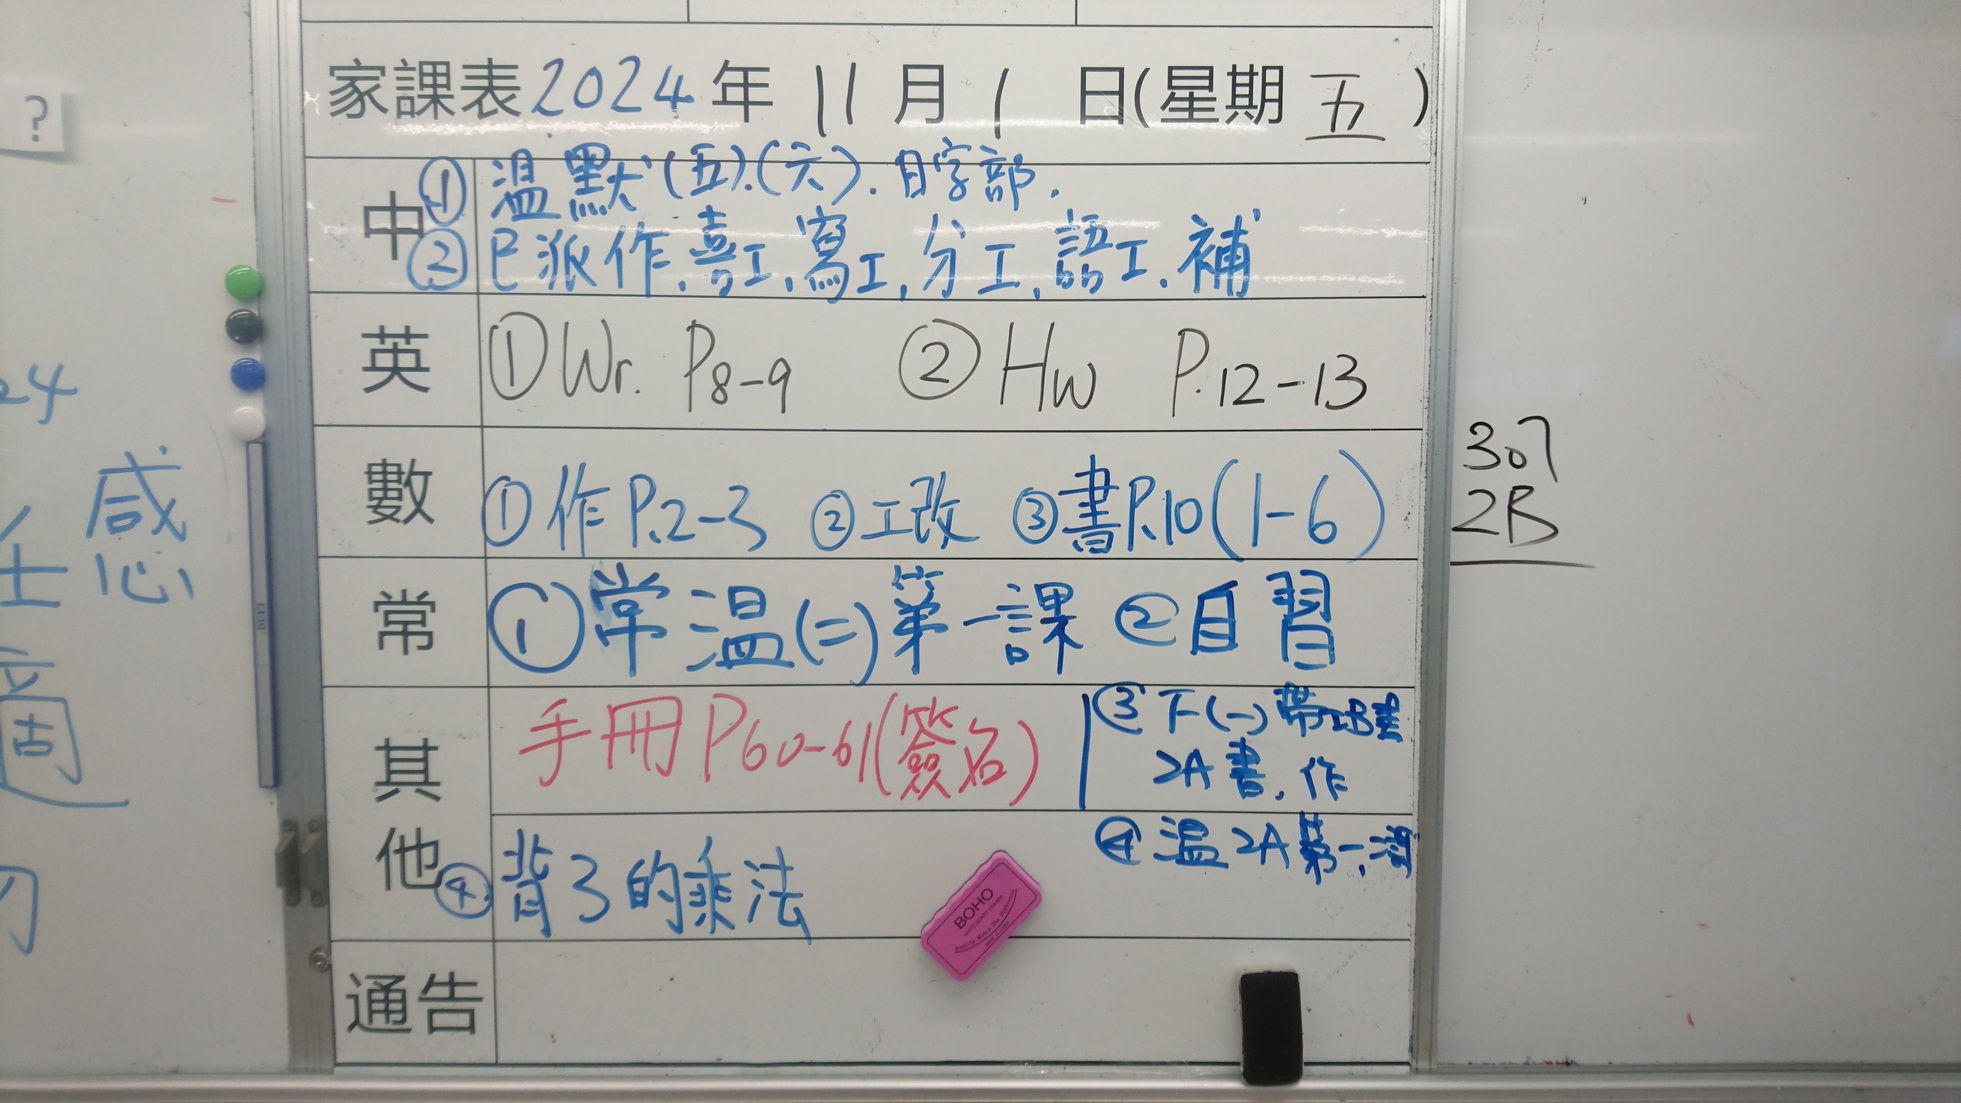 ?
家課表2024年 11月 1 日(星期 五 )
中
①溫默(五).(六).日字部.
②已派作.書工.寫工.分工.語工.補
英
①Wr. P8-9 ②HW P.12-13
數
①作P.2-3 ②工改 ③書P.10(1-6)
常
①常溫(二)第一課 ②自習
其他
手冊P60-61(簽名)
③下(一)帶
2A書.作
④溫2A第一
④背3的乘法
通告
BOHO
307
2B
24
感
任 心
週